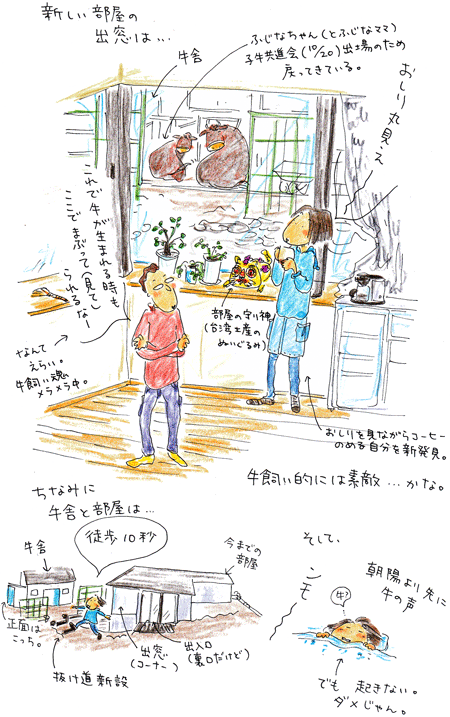 新しい部屋の
出窓は…
牛舎
ふじなちゃん(とふじなママ)
子牛共進会(10/20)出場のため
戻ってきている。
おしり丸見え
これで牛が生まれる時も
ここでまぶって(見て)
られるなー
なんて
えらい。
牛飼い魂
メラメラ中。
部屋の守り神
(台湾土産の
ぬいぐるみ)
おしりを見ながらコーヒー
のめる自分を新発見。
牛飼い的には素敵…かな。
ちなみに
牛舎と部屋は…
徒歩10秒
牛舎
今までの
部屋
正面は
こっち。
抜け道新設
出窓
(コーナー)
出入口
(裏口だけど)
そして、
ンモー
朝陽より先に
牛の声
牛?
でも 起きない。
ダメじゃん。